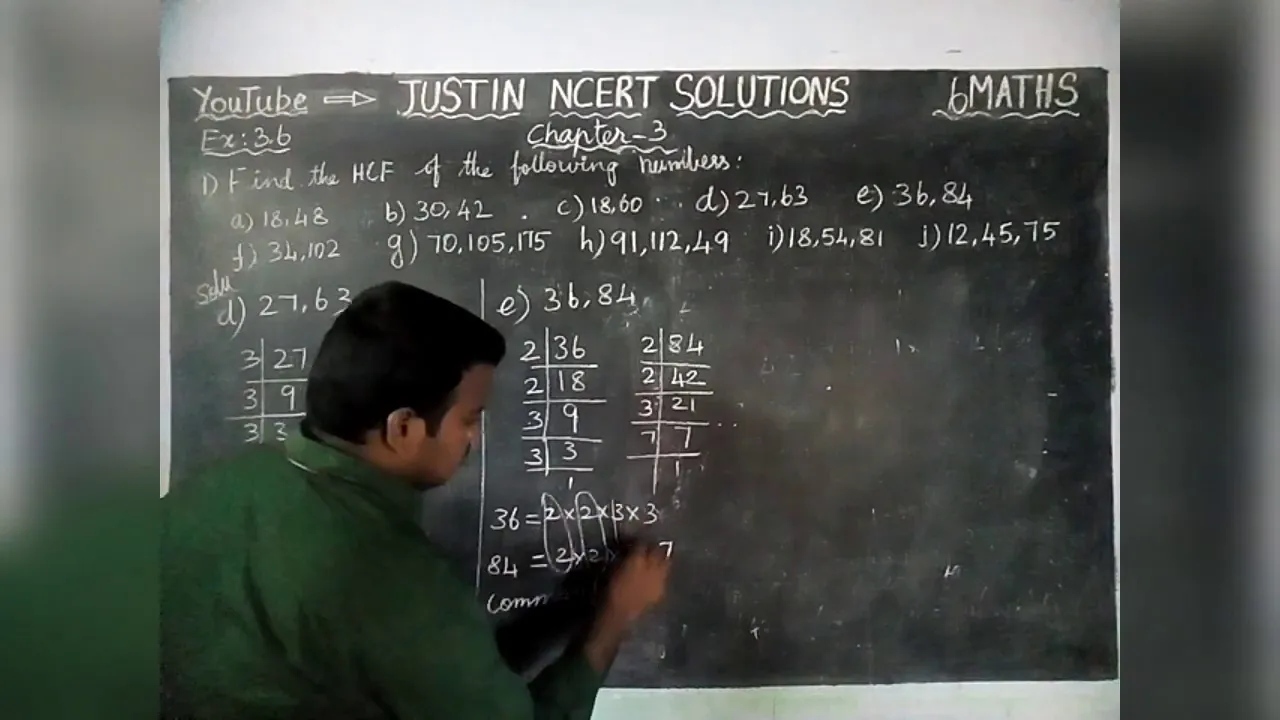 YouTube ⇒ JUSTIN NCERT SOLUTIONS 6 MATHS
Ex: 3.6 Chapter-3
1) Find the HCF of the following numbers:
a) 18,48 b) 30,42 c) 18,60 d) 27,63 e) 36,84
f) 34,102 g) 70,105,175 h) 91,112,49 i) 18,54,81 j) 12,45,75
Solu
d) 27,63
3 27
3 9
3 3
e) 36,84
2 36
2 18
3 9
3 3
1
2 84
2 42
3 21
7 7
1
36 = 2 × 2 × 3 × 3
84 = 2 × 2 × 7